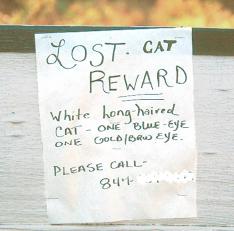 LOST. CAT
REWARD
White Long-haired
CAT - ONE BLUE-EYE
ONE GOLD/BRW EYE.
PLEASE CALL-